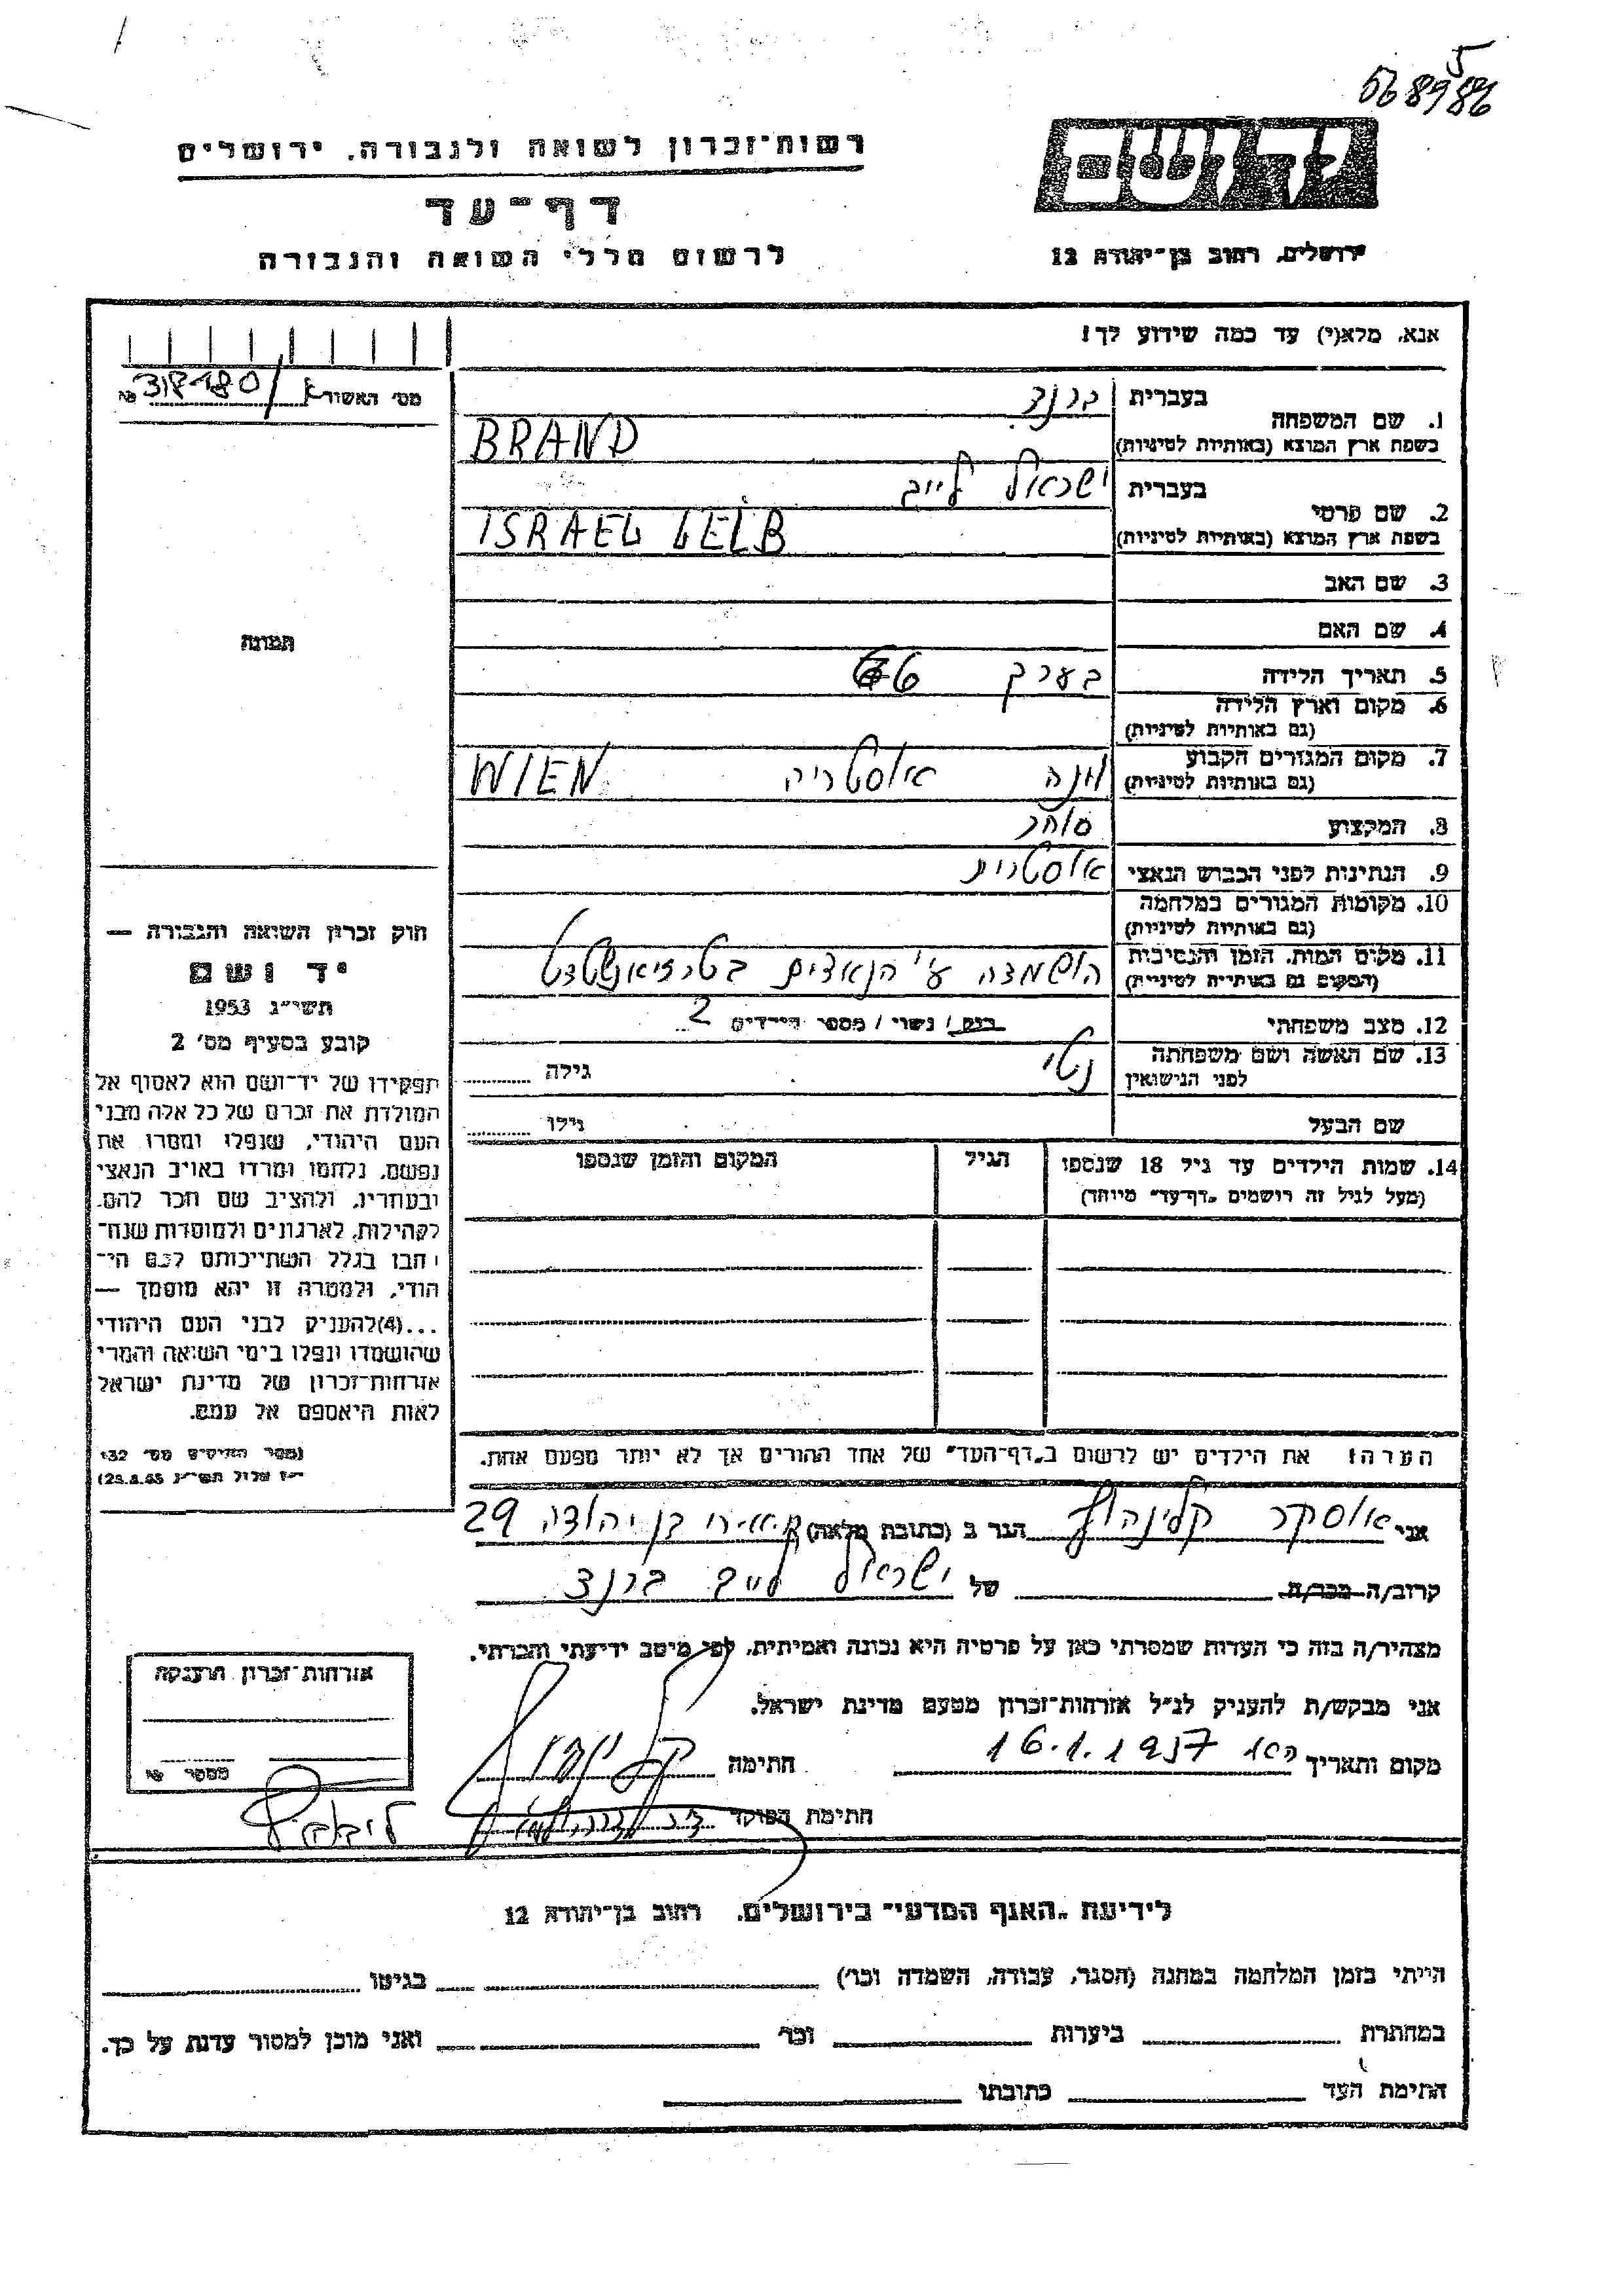 568986
5
יד ושם
רשות־זכרון לשואה ולגבורה, ירושלים
דף־עד
לרשום חללי השואה והגבורה
ירושלים, רחוב בן־יהודה 12
אנא, מלא(י) עד כמה שידוע לך!
מס׳ האשור № 318180/
1. שם המשפחה
בעברית ברנד
בשפת ארץ המוצא (באותיות לטיניות) BRAND
2. שם פרטי
בעברית ישראל לייב
בשפת ארץ המוצא (באותיות לטיניות) ISRAEL LEIB
3. שם האב
4. שם האם
תמונה
5. תאריך הלידה בערך 66
6. מקום וארץ הלידה
(גם באותיות לטיניות)
7. מקום המגורים הקבוע
(גם באותיות לטיניות) וינה אוסטריה WIEN
8. המקצוע סוחר
9. הנתינות לפני הכבוש הנאצי אוסטרית
10. מקומות המגורים במלחמה
(גם באותיות לטיניות)
11. מקום המות, הזמן והנסיבות
(המקום גם באותיות לטיניות) הושמדה ע״י הנאצים בטרזיאנשטדט
12. מצב משפחתי רווק / נשוי / מספר הילדים 2
13. שם האשה ושם משפחתה
לפני הנישואין נטי גילה
שם הבעל גילו
14. שמות הילדים עד גיל 18 שנספו הגיל המקום והזמן שנספו
(מעל לגיל זה רושמים „דף־עד״ מיוחד)
חוק זכרון השואה והגבורה —
יד ושם
תשי״ג 1953
קובע בסעיף מס׳ 2
תפקידו של יד־ושם הוא לאסוף אל
המולדת את זכרם של כל אלה מבני
העם היהודי, שנפלו ומסרו את
נפשם, נלחמו ומרדו באויב הנאצי
ובעוזריו, ולהציב שם וזכר להם,
לקהילות, לארגונים ולמוסדות שנח־
רבו בגלל השתייכותם לעם הי־
הודי, ולמטרה זו יהא מוסמך —
...(4) להעניק לבני העם היהודי
שהושמדו ונפלו בימי השואה והמרי
אזרחות־זכרון של מדינת ישראל
לאות היאספם אל עמם.
(ספר החוקים מס׳ 132
הערה: את הילדים יש לרשום ב„דף־העד״ של אחד ההורים אך לא יותר מפעם אחת.
אני אוסקר קלינהוף הגר ב (כתובת מלאה) בן יהודה 29
קרוב/ה מכר/ה של ישראל לייב ברנד
מצהיר/ה בזה כי העדות שמסרתי כאן על פרטיה היא נכונה ואמיתית, לפי מיטב ידיעתי והכרתי.
אני מבקש/ת להעניק לנ״ל אזרחות־זכרון מטעם מדינת ישראל.
מקום ותאריך 16.1.1957 חתימה
חתימת הפוקד
אזרחות־זכרון הוענקה
מספר
לידיעת „האגף המדעי״ בירושלים, רחוב בן־יהודה 12
הייתי בזמן המלחמה במחנה (הסגר, עבודה, השמדה וכו׳) בגיטו
במחתרת ביערות וכו׳ ואני מוכן למסור עדות על כך.
חתימת העד כתובתו